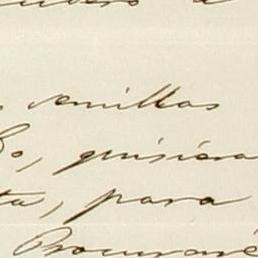 a
semillas
quisiera
ta, para
Procuraré